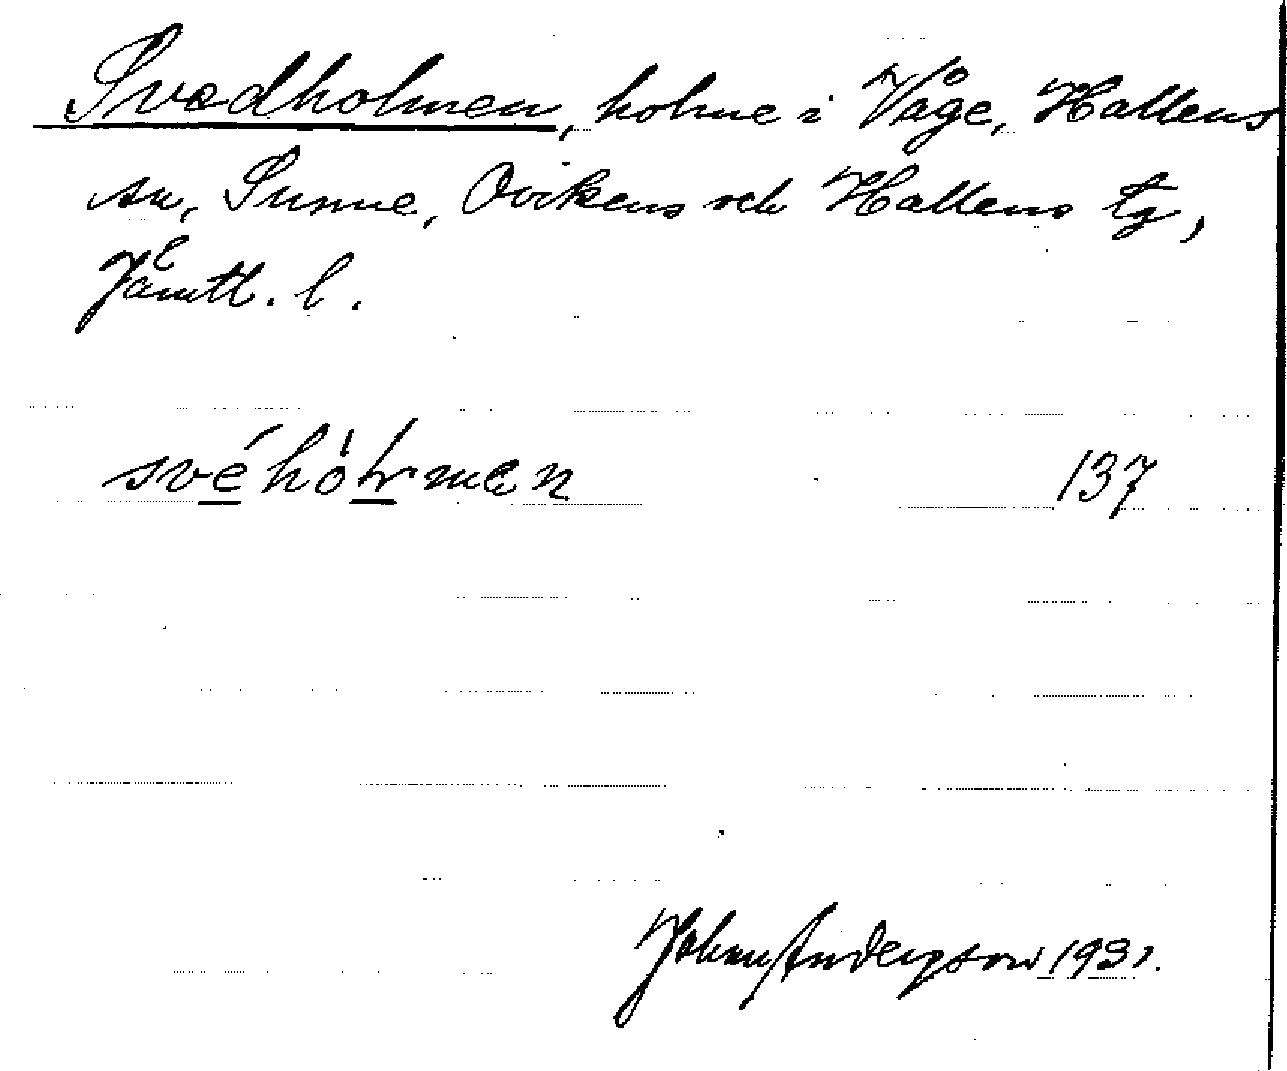 Svedholmen, holme i Våge, Hallens
sn, Sunne, Ovikens och Hallens tg,
Jämtl. l.
svéhólmen 137
John Andersson 1931.